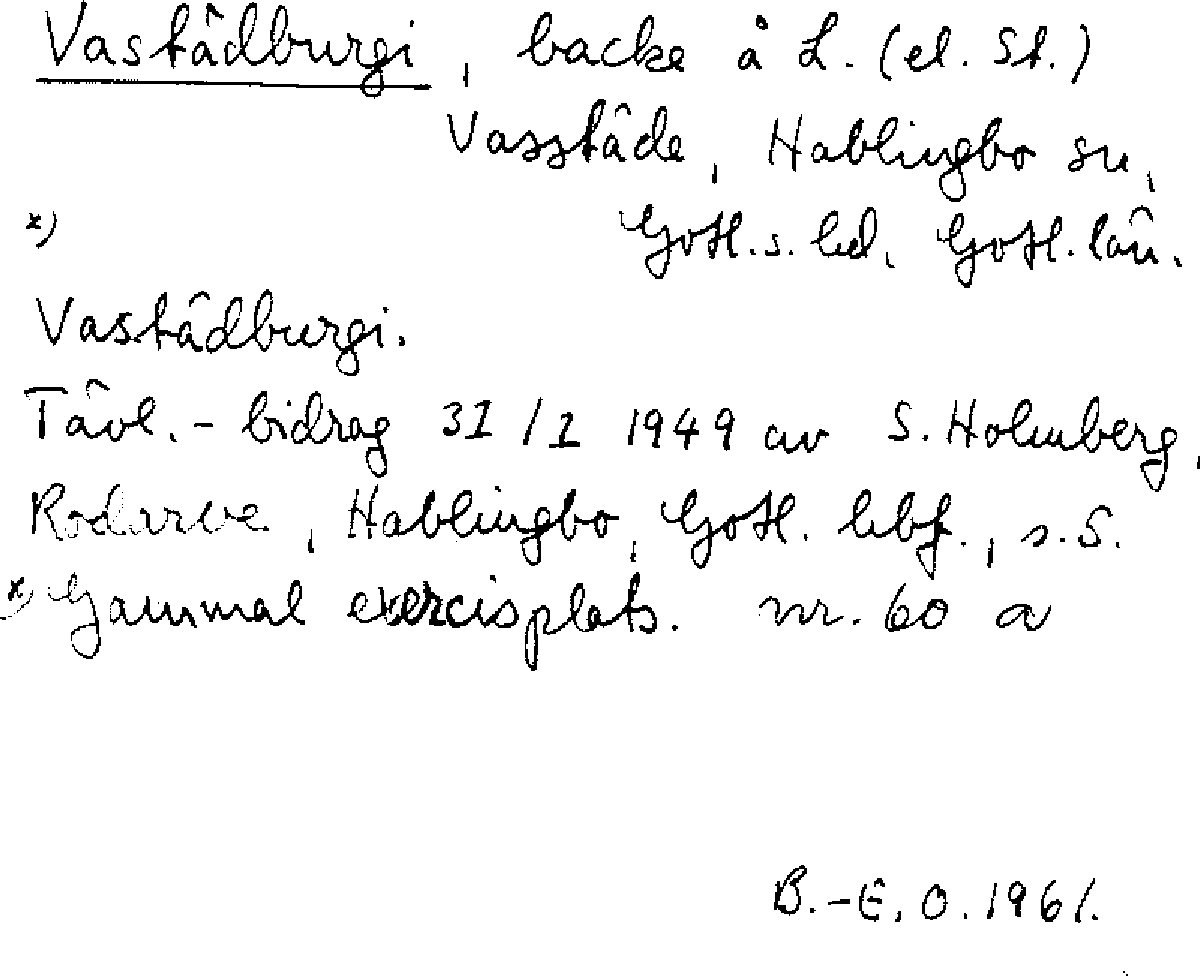 Vastâdburgi, backe å L. (el. St.)
Vasstâde, Hablingbo sn,
x) Gotl. s. hd. Gotl. lân.
Vastâdburgi.
Tâvl.-bidrag 31/1 1949 av S. Holmberg,
Rodarve, Hablingbo, Gotl. hbf., s. S.
x) Gammal exercisplats. nr. 60 a
B.-E. O. 1961.